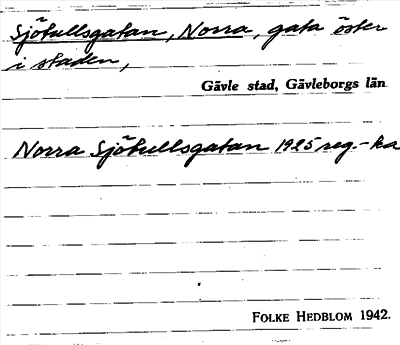 Sjötullsgatan, Norra, gata öster
i staden,
Gävle stad, Gävleborgs län.
Norra Sjötullsgatan 1925 reg.-ka
FOLKE HEDBLOM 1942.